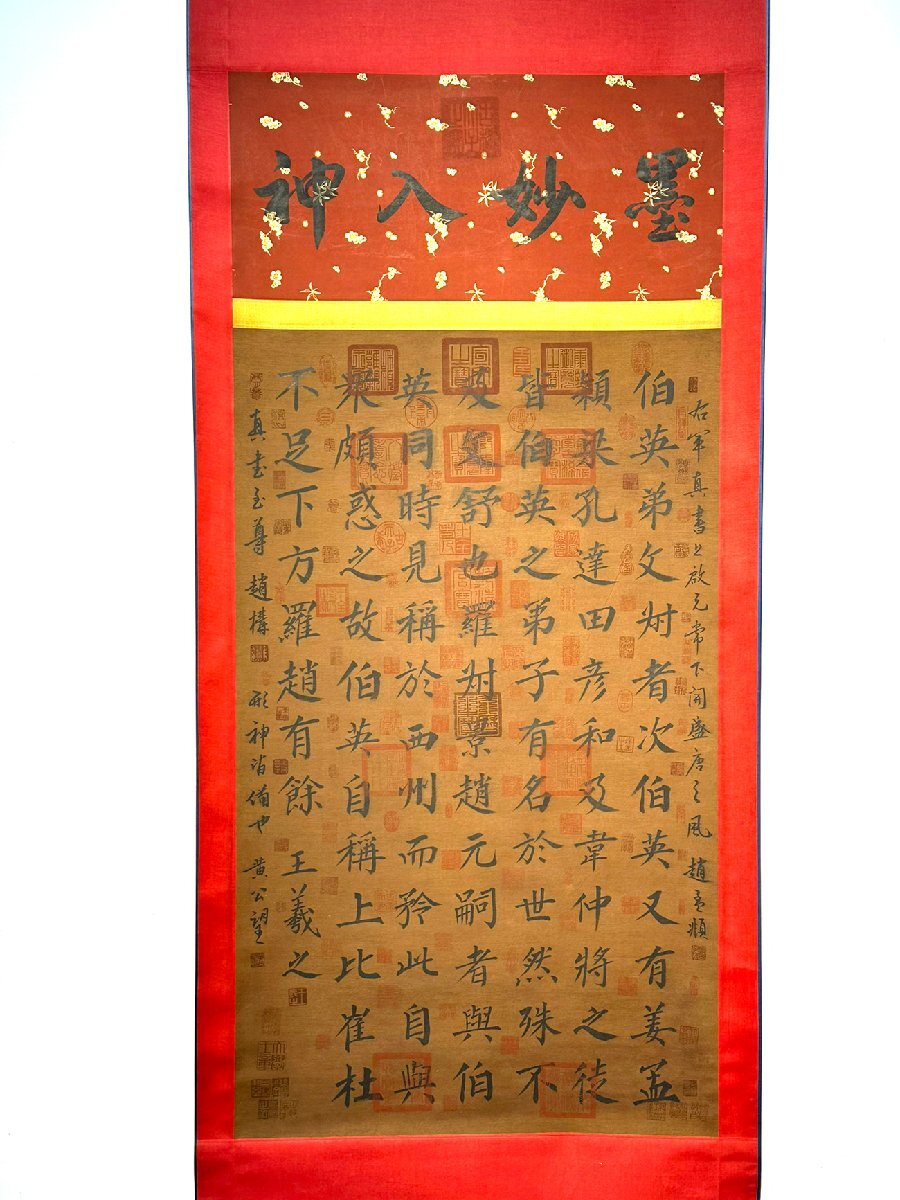 墨妙入神
右軍真書上啟元常下開盛唐之風 趙孟頫
伯英弟文叔者次伯英又有姜孟
穎梁孔達田彥和及韋仲將之徒
皆伯英之弟子有名於世然殊不
及文舒也羅叔景趙元嗣者與伯
英同時見稱於西州而矜此自與
眾頗惑之故伯英自稱上比崔杜
不足下方羅趙有餘 王羲之
真書至尊 趙構 形神皆備也 黃公望